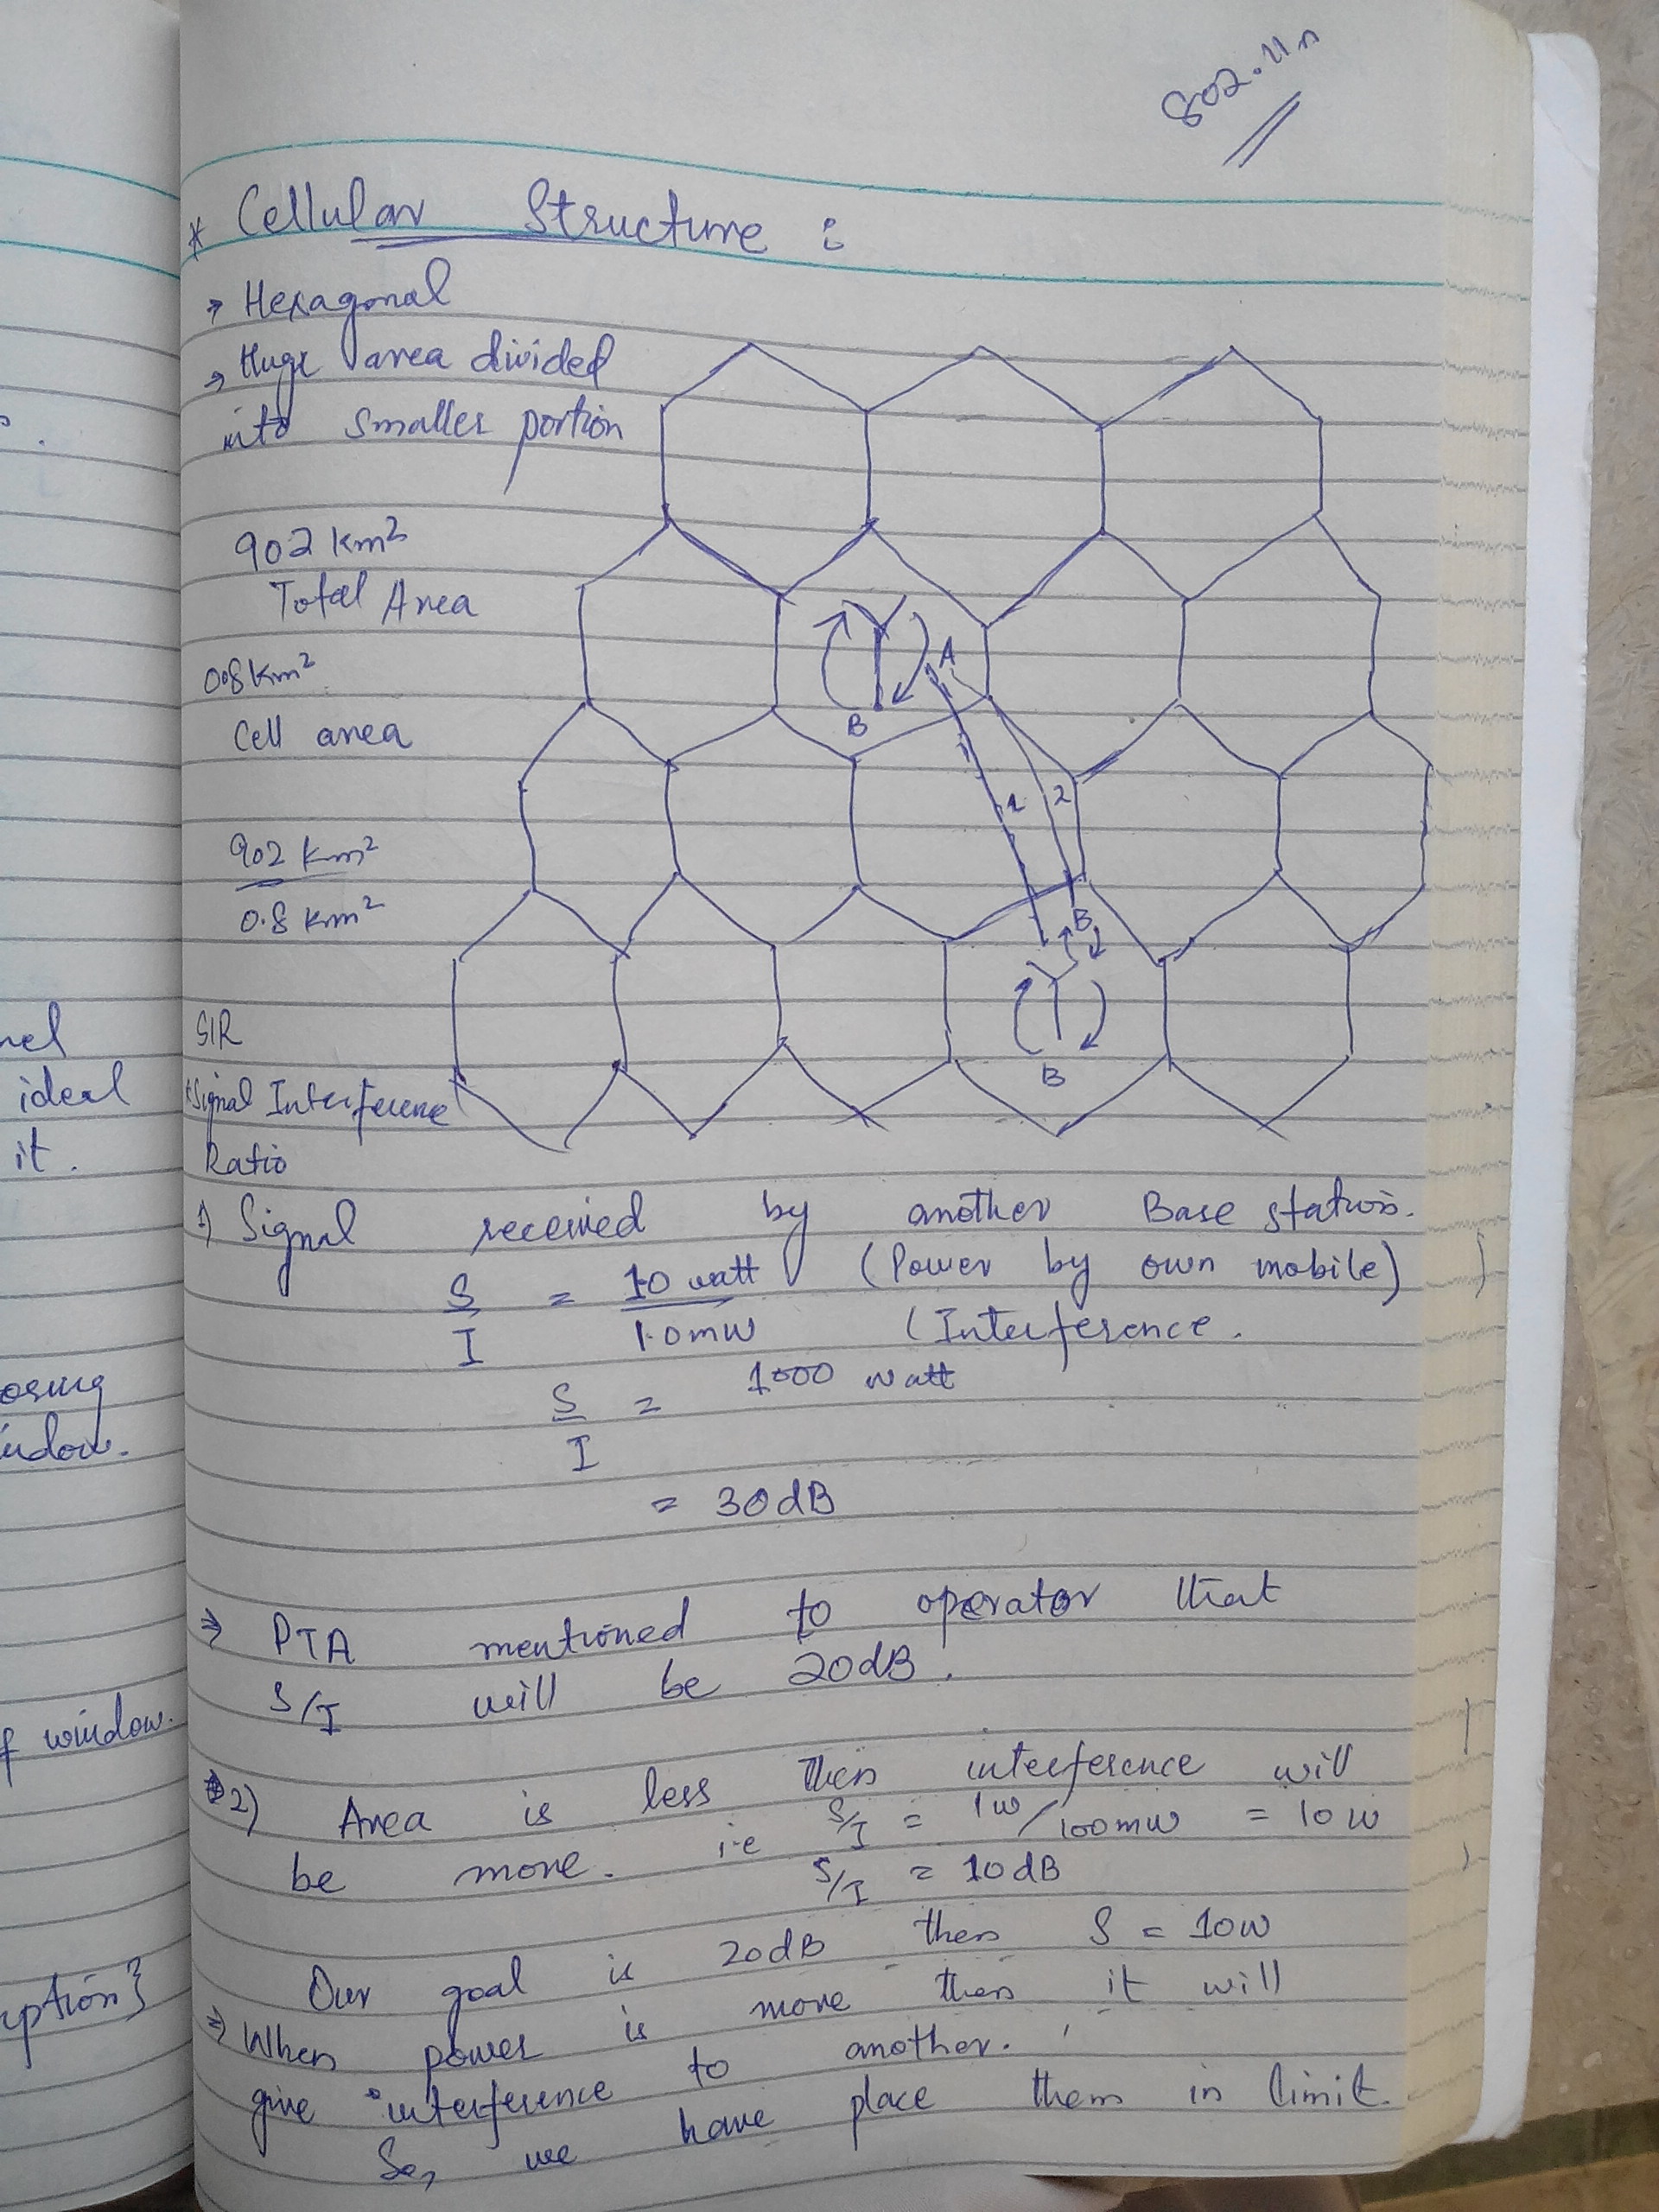 802.11n
* Cellular Structure :
→ Hexagonal
→ Huge area divided
into smaller portion
902 km²
Total Area
0.8 km²
Cell area
902 km²
0.8 km²
A
B
1 2
B
B
SIR
Signal Interference
Ratio
1) Signal received by another Base station.
S/I = 10 watt (Power by own mobile)
1.0mw (Interference.
S/I = 1000 watt
= 30dB
⇒ PTA mentioned to operator that
S/I will be 20dB.
2) Area is less then interference will
be more. i.e S/I = 1w/100mw = 10w
S/I = 10dB
Our goal is 20dB then S = 10w
⇒ When power is more then it will
give interference to another.
So, we have place them in limit.
nel
ideal
it.
osing
indow.
f window.
ption}